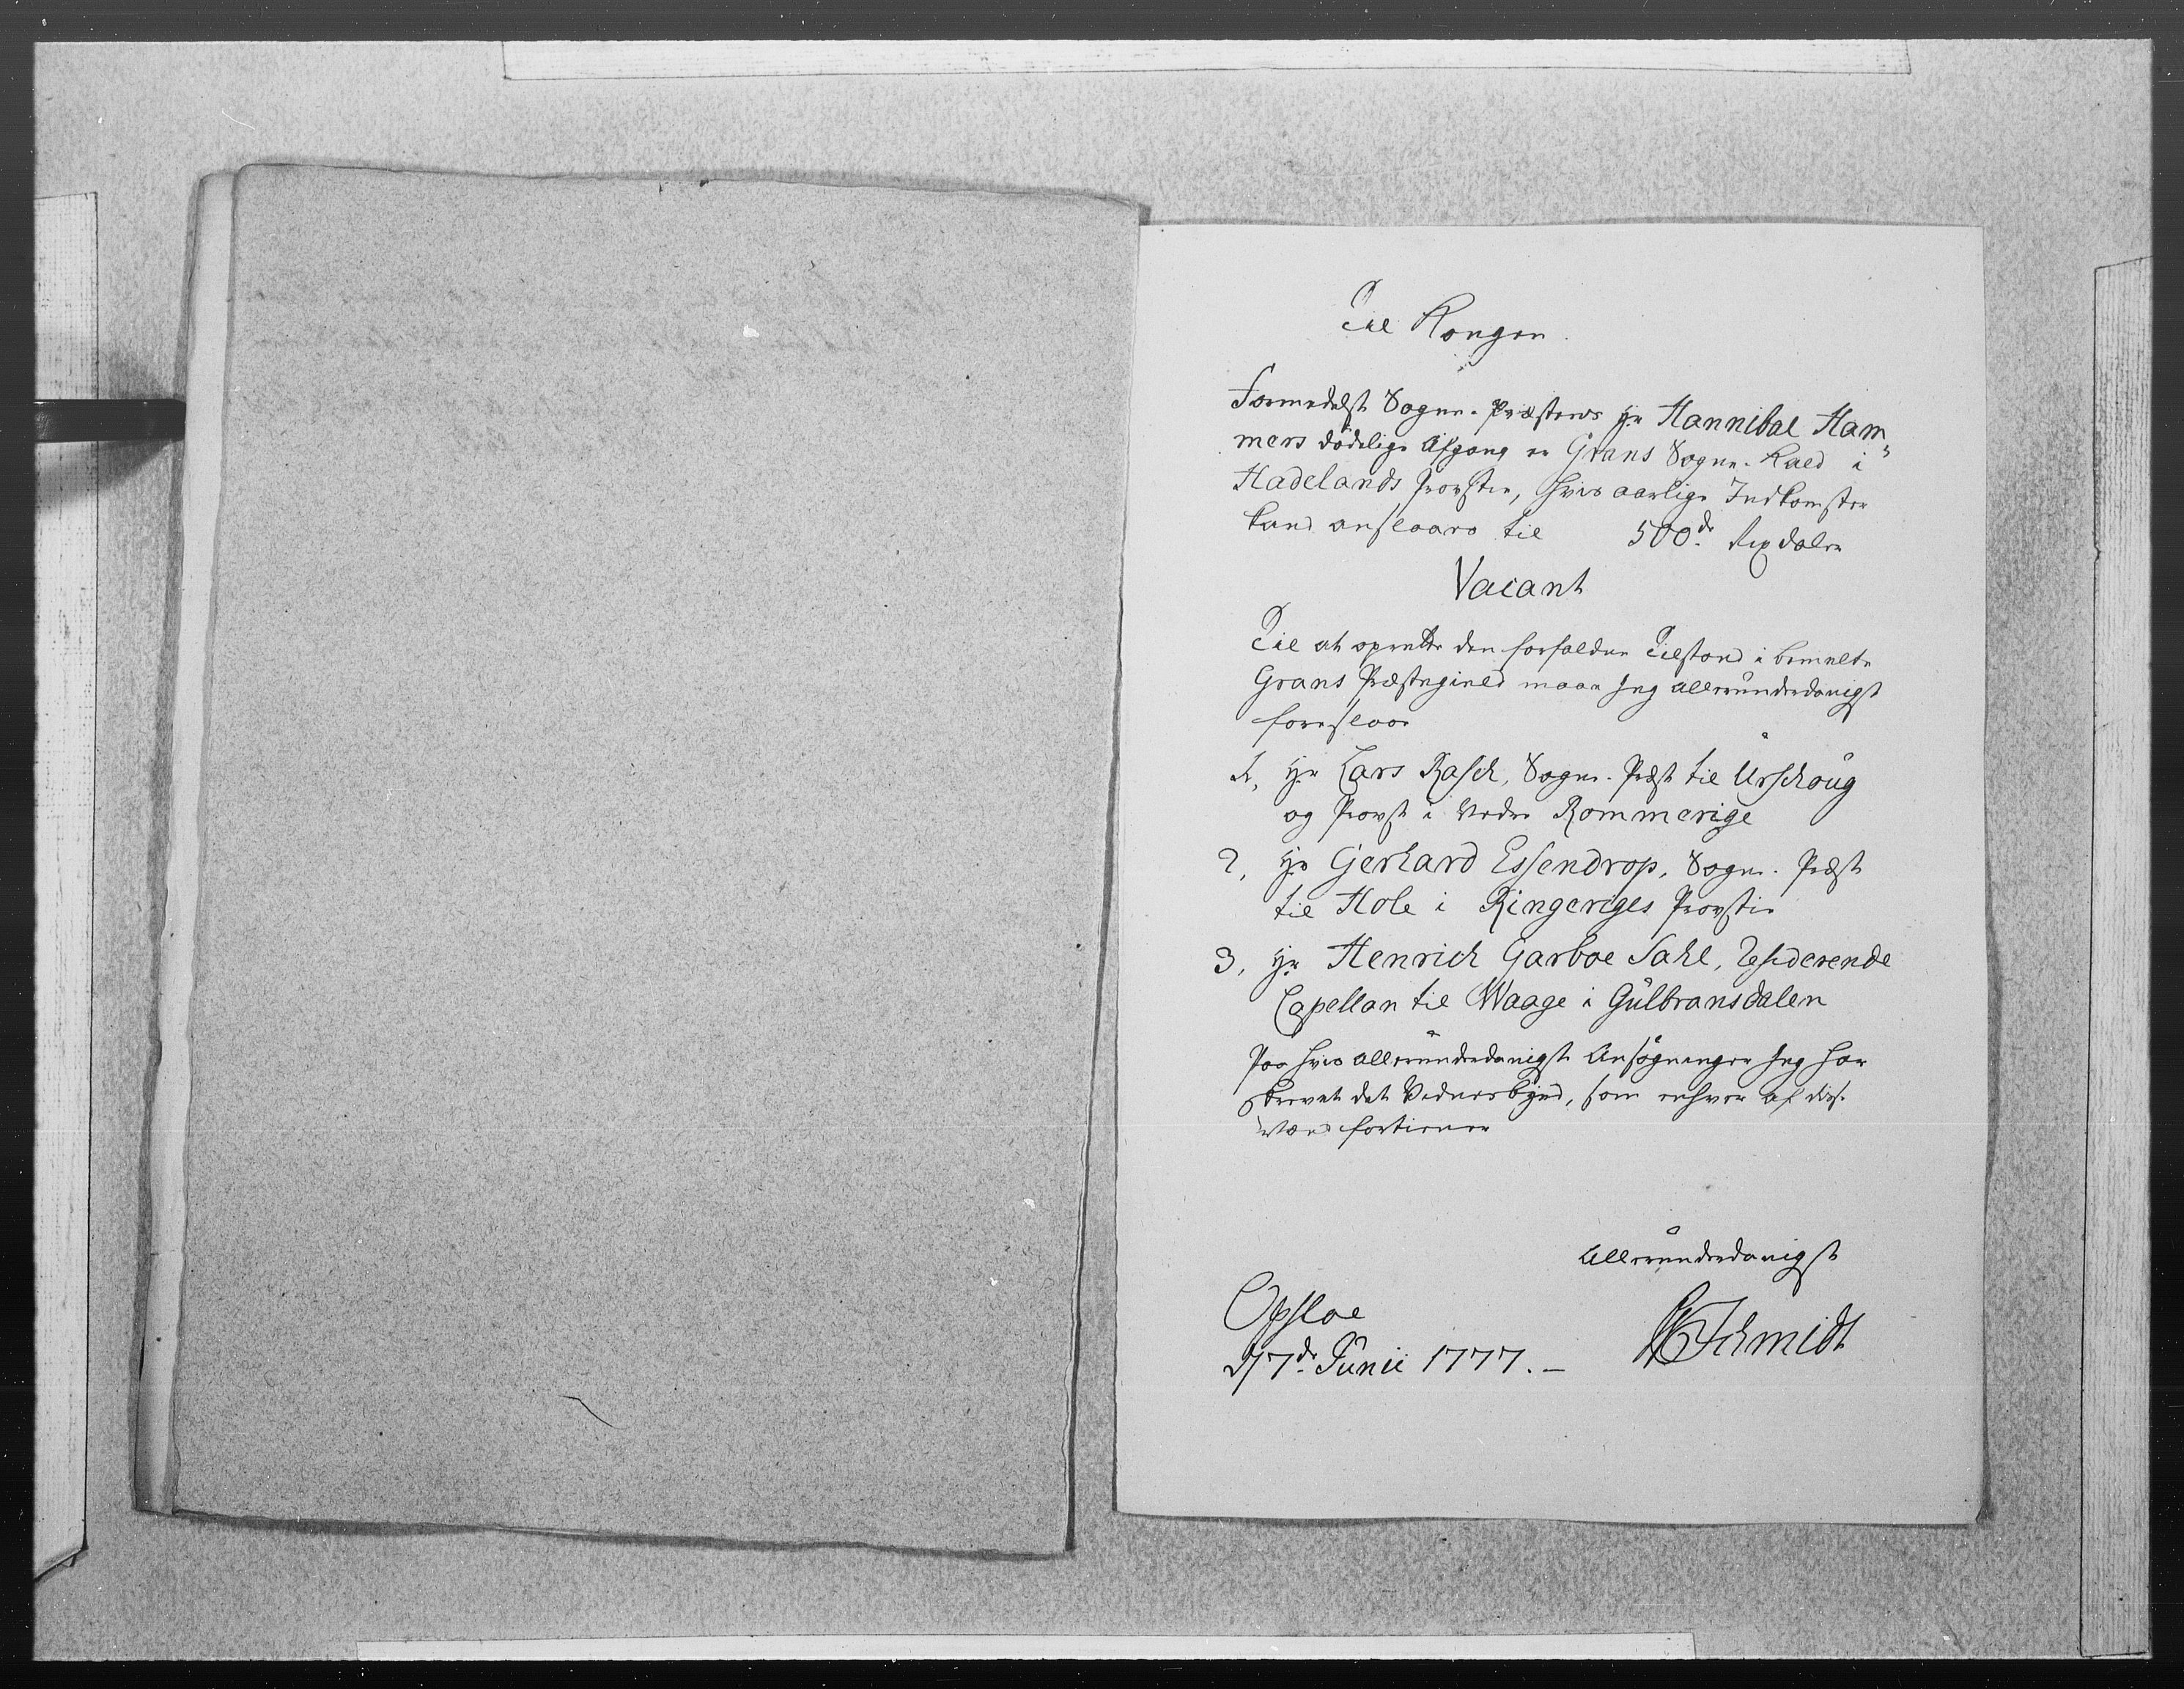 Til Kongen.
Formedelst Sogne-Præstens Hr Hannibal Ham¬
mers dødelige Afgang er Grans Sogne-Kald i
Hadelands Provstie, hvis aarlige Indkomster
kand ansloaes til 500de Rixdaler
Vacant
Til at oprette den forfaldne Tilstand i bemelte
Grans Præstegield maae Jeg allerunderdanigst
foresloae
1, Hr Lars Rasch, Sogne-Præst til Urschoug
og Provst i Nedre Rommerige
2, Hr Gerhard Essendrop, Sogne-Præst
til Hole i Ringeriges Provstie
3, Hr Henrich Garboe Sahl, Residerende
Capellan til Waage i Gulbransdalen
Paa hvis allerunderdanigste Ansøgninger Jeg har
skrevet det Vidnesbyrd, som enhver af disse
Mænd fortiener
Allerunderdanigst
Opsloe
d 7de Junii 1777.-
Schmidt